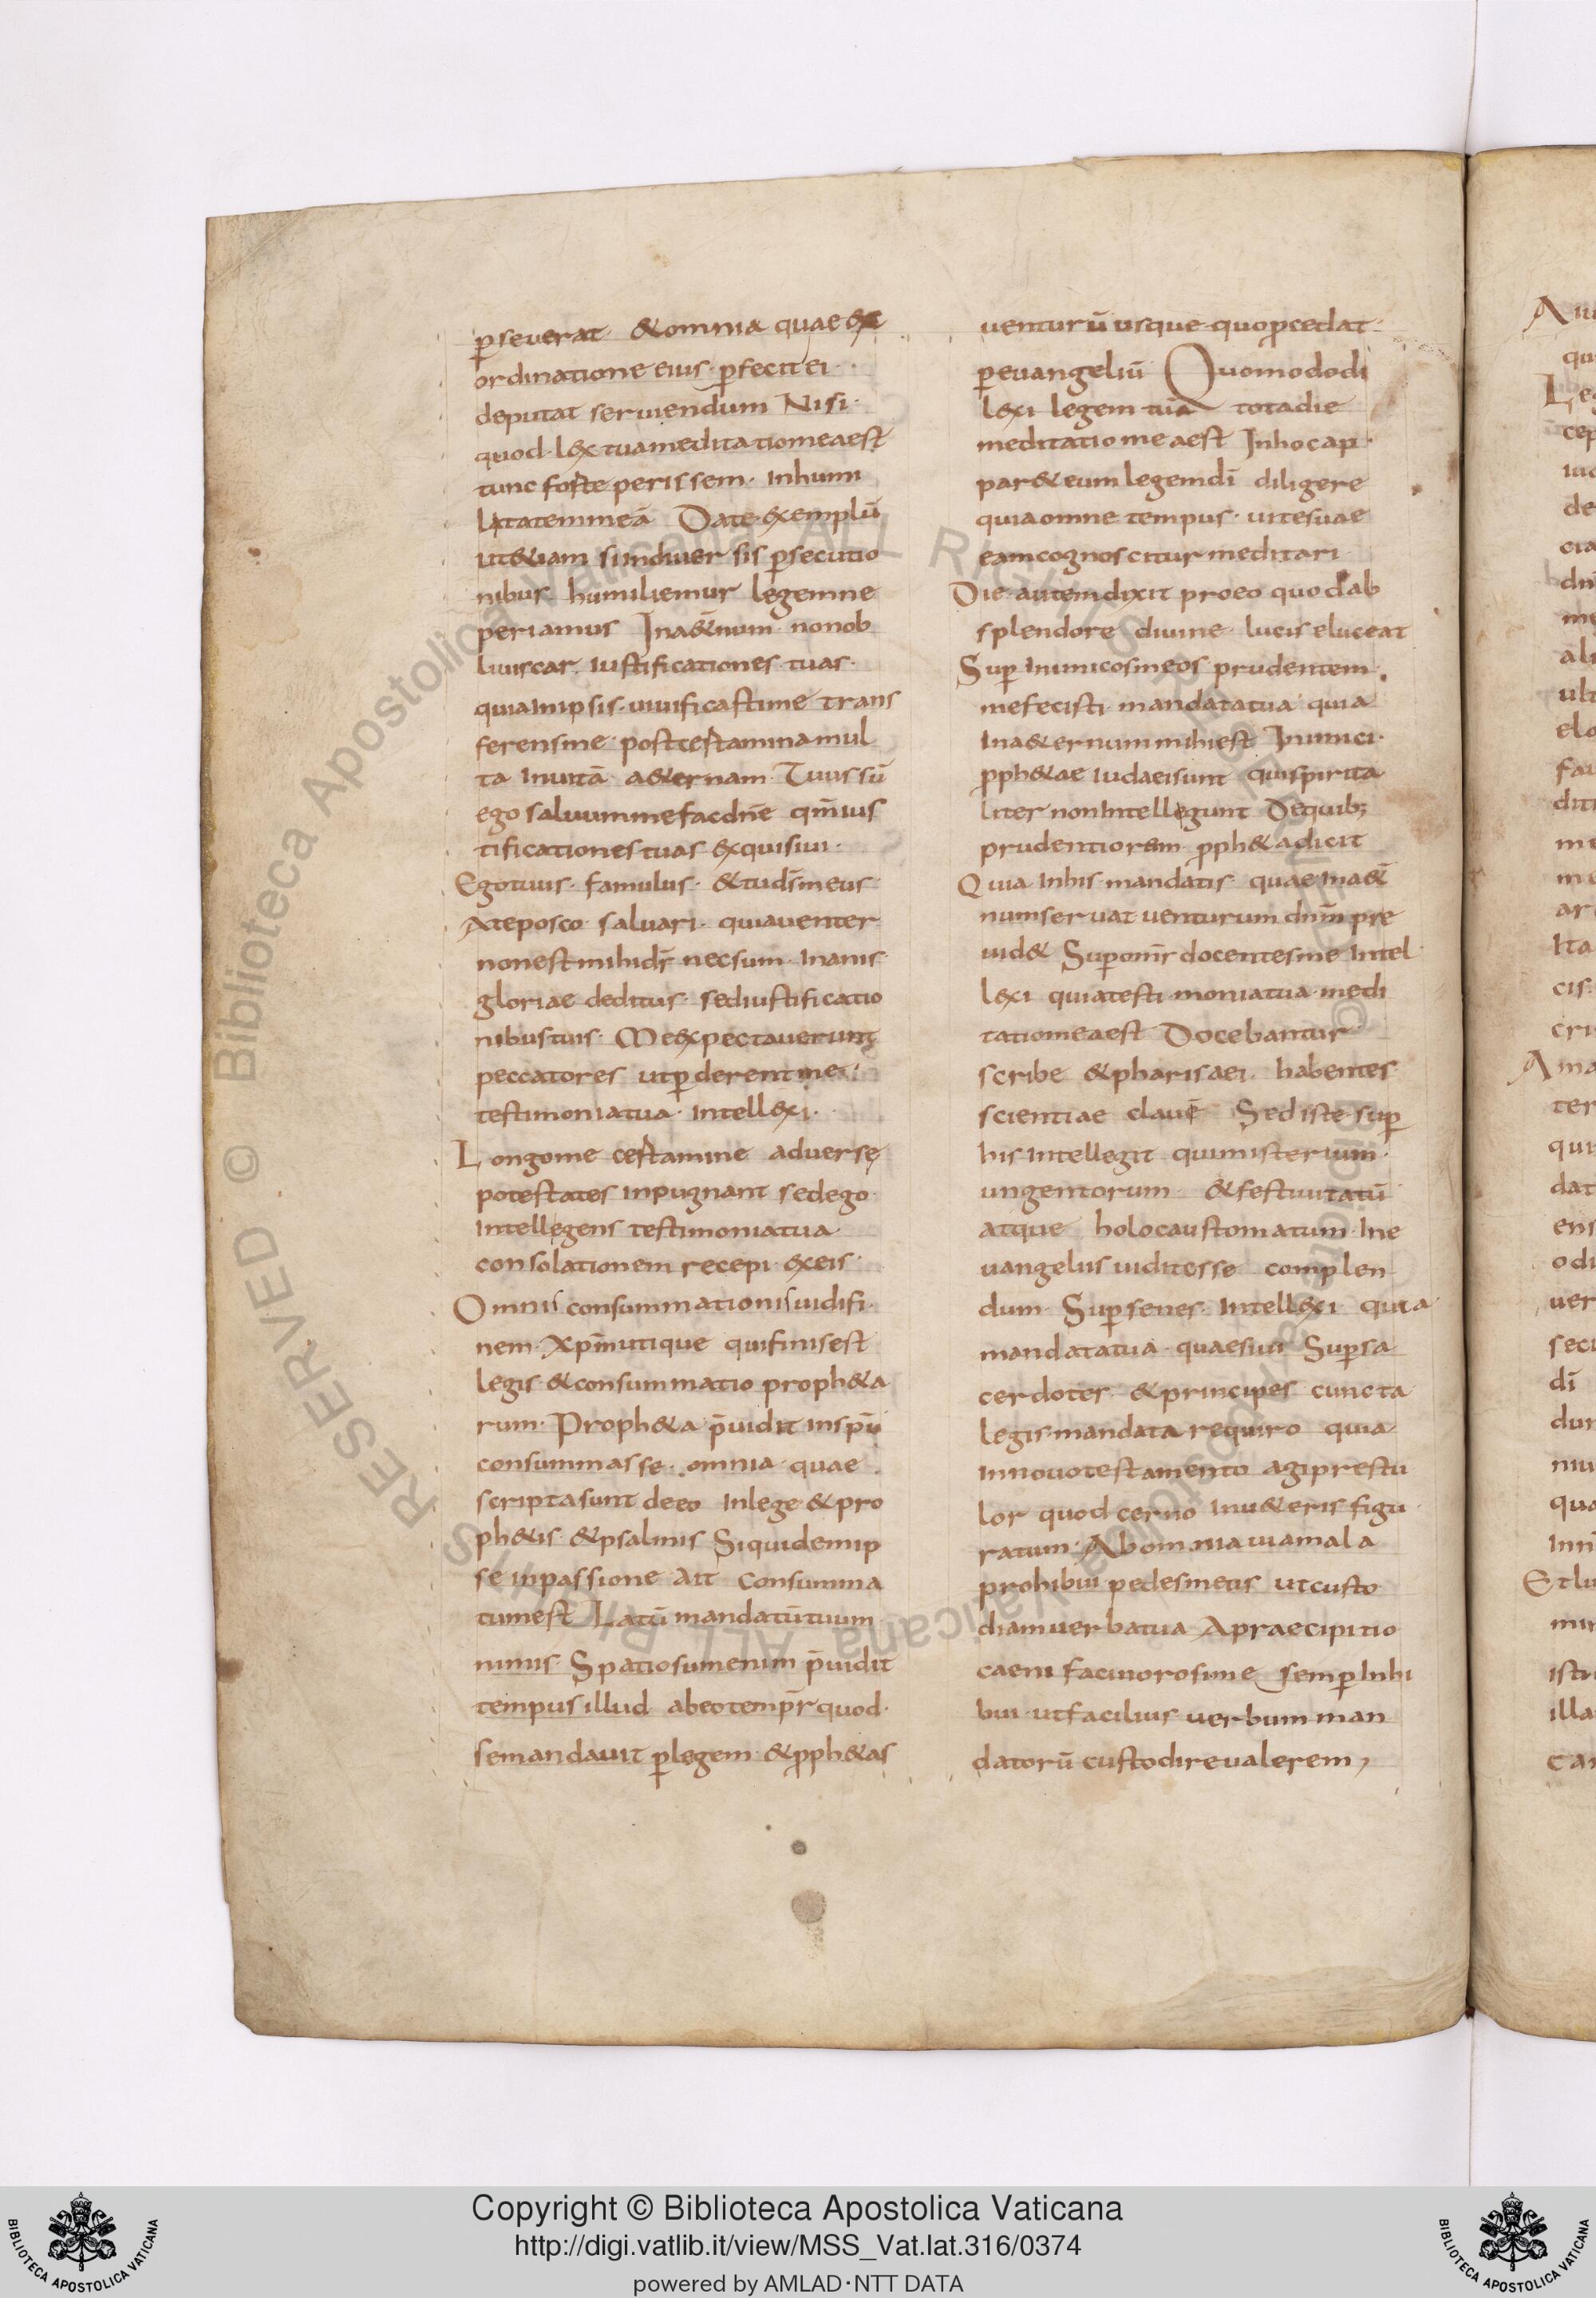 ꝑseuerat &omnia quae ex
ordinatione eius· ꝑfecit ei·
deputat seruiendum Nisi·
quod·lex tuameditatiomeaest
tunc forte perissem· Inhumi
litatemmeā Date·exemplū
ut&iam siindiuersis ꝑsecutio
nibus humiliemur legemne
periamus Ina&̄num· nonob
liuiscar· iustificationes·tuas·
quiainipsis·uiuificastime trans
ferensme· postcestaminamul
ta inuitā a&ernam· Tuussū
ego saluummefacdn̄e qm̄ius
tificationestuas exquisiui·
Egotuus· famulus· &tud̄smeus
Ateposco saluari· quiauenter
nonestmihid̄s necsum· inanis·
gloriae deditus· sediustificatio
nibustuis· Meexpectauerunt
peccatores utꝑderentme·
testimoniatua· intellexi·
Longome cestamine aduersę
potestates inpugnant sedego
intellegens testimoniatua
consolationem recepi·exeis·
Omnis consummationisuidifi·
nem·xp̄mutique quifinisest
legis &consummatio proph&a
rum· Proph&a p̄uidit insp̄u
consummasse· omnia quae
scriptasunt deeo inlege &pro
ph&is· &psalmis Siquidemip
se inpassione ait consumma
tumest Latū mandatūtuum
nimis· Spatiosumenim p̄uidit
tempusillud abeotemp̄r quod·
semandauit ꝑlegem &ꝓph&as
uenturū usque quoꝓcedat
ꝑeuangeliū Quomododi
lexi legem tuā totadie
meditatiomeaest Inhocap
par&eumlegemdī diligere
quiaomne tempus· uitesuae
eamcognoscitur meditari
Die·autemdixit proeo quodab
splendore diuine· lucis eluceat
Suꝑ inimicosmeos prudentem
mefecisti·mandatatua quia
ina&ernummihiest Inimici·
ꝓph&ae iudaeisunt quispirita
liter nonintellegunt Dequib;
prudentiorem ꝓph&adicit
Quia inhis·mandatis· quaeina&̄
numseruat uenturum dn̄m pre
uid& Suꝑomn̄s docentesme intel
lexi quiatestimoniatua·medi
tatiomeaest Docebantur
scribe &pharisaei· habentes
scientiae clauē Sediste·suꝑ
his intellegit quimisterium·
ungentorum &festiuitatū
atque holocaustomatum·ine
uangeliis uiditesse complen
dum· Suꝑsenes· intellexi quia
mandatatua·quaesiui Suꝑsa
cerdotes &principes cuncta
legis·mandata requiro quia
innouotestamento agiprestu
lor quod cerno inu&eris figu
ratum· Abomniauiamala
prohibui pedesmeus utcusto
diamuerbatua Apraecipitio
caeni facinorosime semꝑinhi
bui·utfacilius uerbumman
datorū custodireualerem,
Copyright © Biblioteca Apostolica Vaticana
http://digi.vatlib.it/view/MSS_Vat.lat.316/0374
powered by AMLAD·NTT DATA
BIBLIOTECA APOSTOLICA VATICANA
BIBLIOTECA APOSTOLICA VATICANA